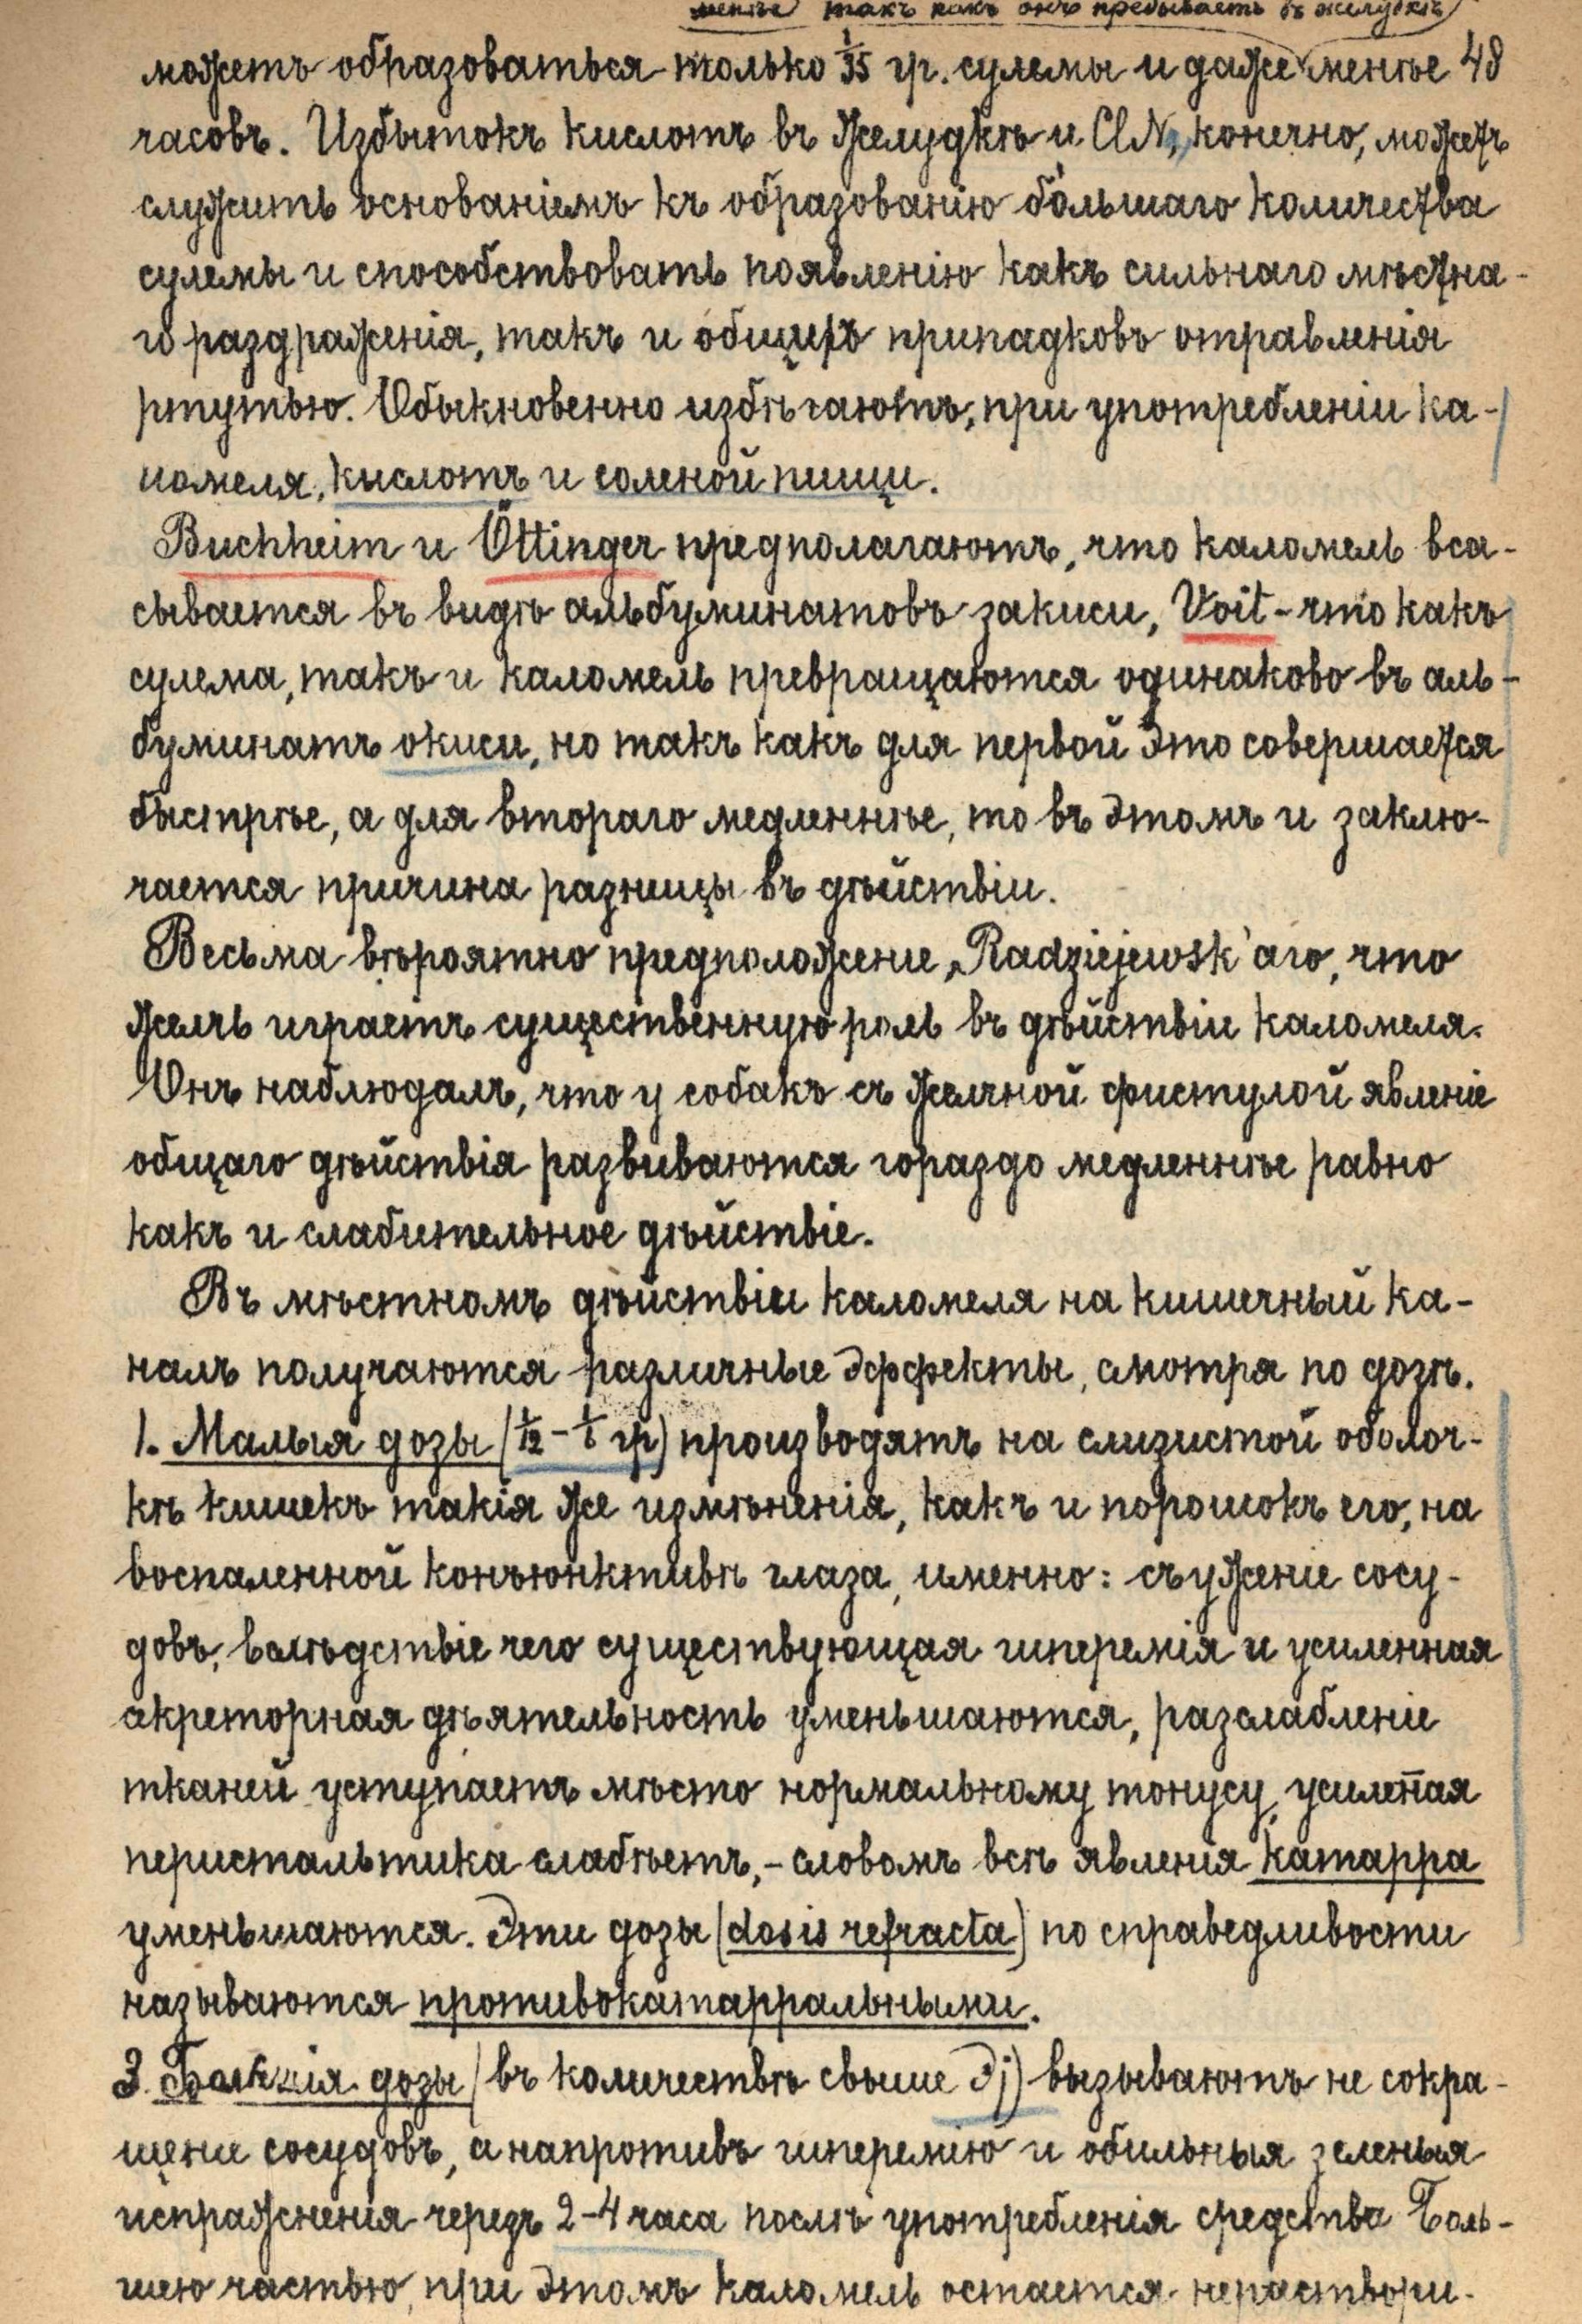 менѣе такъ какъ онъ пребываетъ въ желудкѣ
можетъ образоваться только 1/35 гр. сулемы и даже менѣе 48
часовъ. Избытокъ кислотъ въ желудкѣ и ClNa, конечно, можетъ
служить основаніемъ къ образованію бо́льшаго количества
сулемы и способствовать появленію какъ сильнаго мѣстна-
го раздраженія, такъ и общихъ припадковъ отравленія
ртутью. Обыкновенно избѣгаютъ, при употребленіи ка-
ломеля, кислотъ и соленой пищи.
Buchheim и Öttinger предполагаютъ, что каломель вса-
сывается въ видѣ альбуминатовъ закиси, Voit - что какъ
сулема, такъ и каломель превращаются одинаково въ аль-
буминатъ окиси, но такъ какъ для первой это совершается
быстрѣе, а для втораго медленнѣе, то въ этомъ и заклю-
чается причина разницы въ дѣйствіи.
Весьма вѣроятно предположеніе Radziejewsk'аго, что
желчь играетъ существенную роль въ дѣйствіи каломеля.
Онъ наблюдалъ, что у собакъ съ желчной фистулой явленіе
общаго дѣйствія развиваются гораздо медленнѣе равно
какъ и слабительное дѣйствіе.
Въ мѣстномъ дѣйствіи каломеля на кишечный ка-
налъ получаются различные эффекты, смотря по дозѣ.
1. Малыя дозы (1/12 - 1/6 гр) производятъ на слизистой оболоч-
кѣ кишекъ такія же измѣненія, какъ и порошокъ его, на
воспаленной конъюнктивѣ глаза, именно: съуженіе сосу-
довъ, вслѣдствіе чего существующая гиперемія и усиленная
секреторная дѣятельность уменьшаются, разслабленіе
тканей уступаетъ мѣсто нормальному тонусу, усилен̄ая
перистальтика слабѣетъ, - словомъ всѣ явленія катарра
уменьшаются. Эти дозы (dosis refracta) по справедливости
называются противокатарральными.
3. Большія дозы (въ количествѣ свыше ℈j) вызываютъ не сокра-
щеніе сосудовъ, а напротивъ гиперемію и обильныя зеленыя
испражненія черезъ 2-4 часа послѣ употребленія средства Боль-
шею частью, при этомъ каломель остается нераствори-